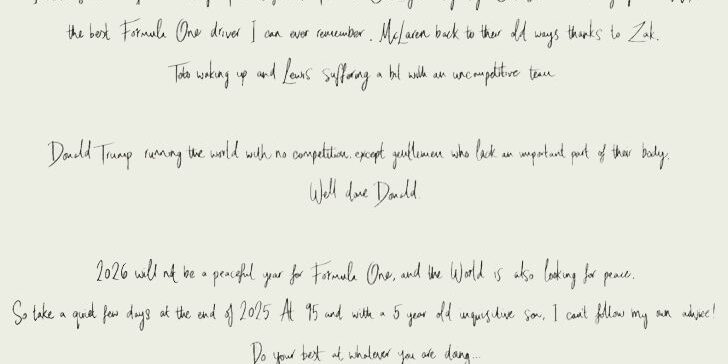 the best Formula One driver I can ever remember. McLaren back to their old ways thanks to Zak.
Toto waking up and Lewis suffering a bit with an uncompetitive team
Donald Trump running the world with no competition, except gentlemen who lack an important part of their body.
Well done Donald.
2026 will not be a peaceful year for Formula One, and the World is also looking for peace.
So take a quiet few days at the end of 2025 At 95 and with a 5 year old inquisitive son, I can't follow my own advice!
Do your best at whatever you are doing...